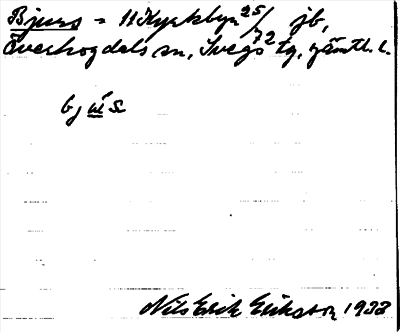 Bjurs = 11 Kyrkbyn 25/72 jb,
Överhogdals sn, Svegs tg, Jämtl. l.
Nils Erik Eriksson 1933